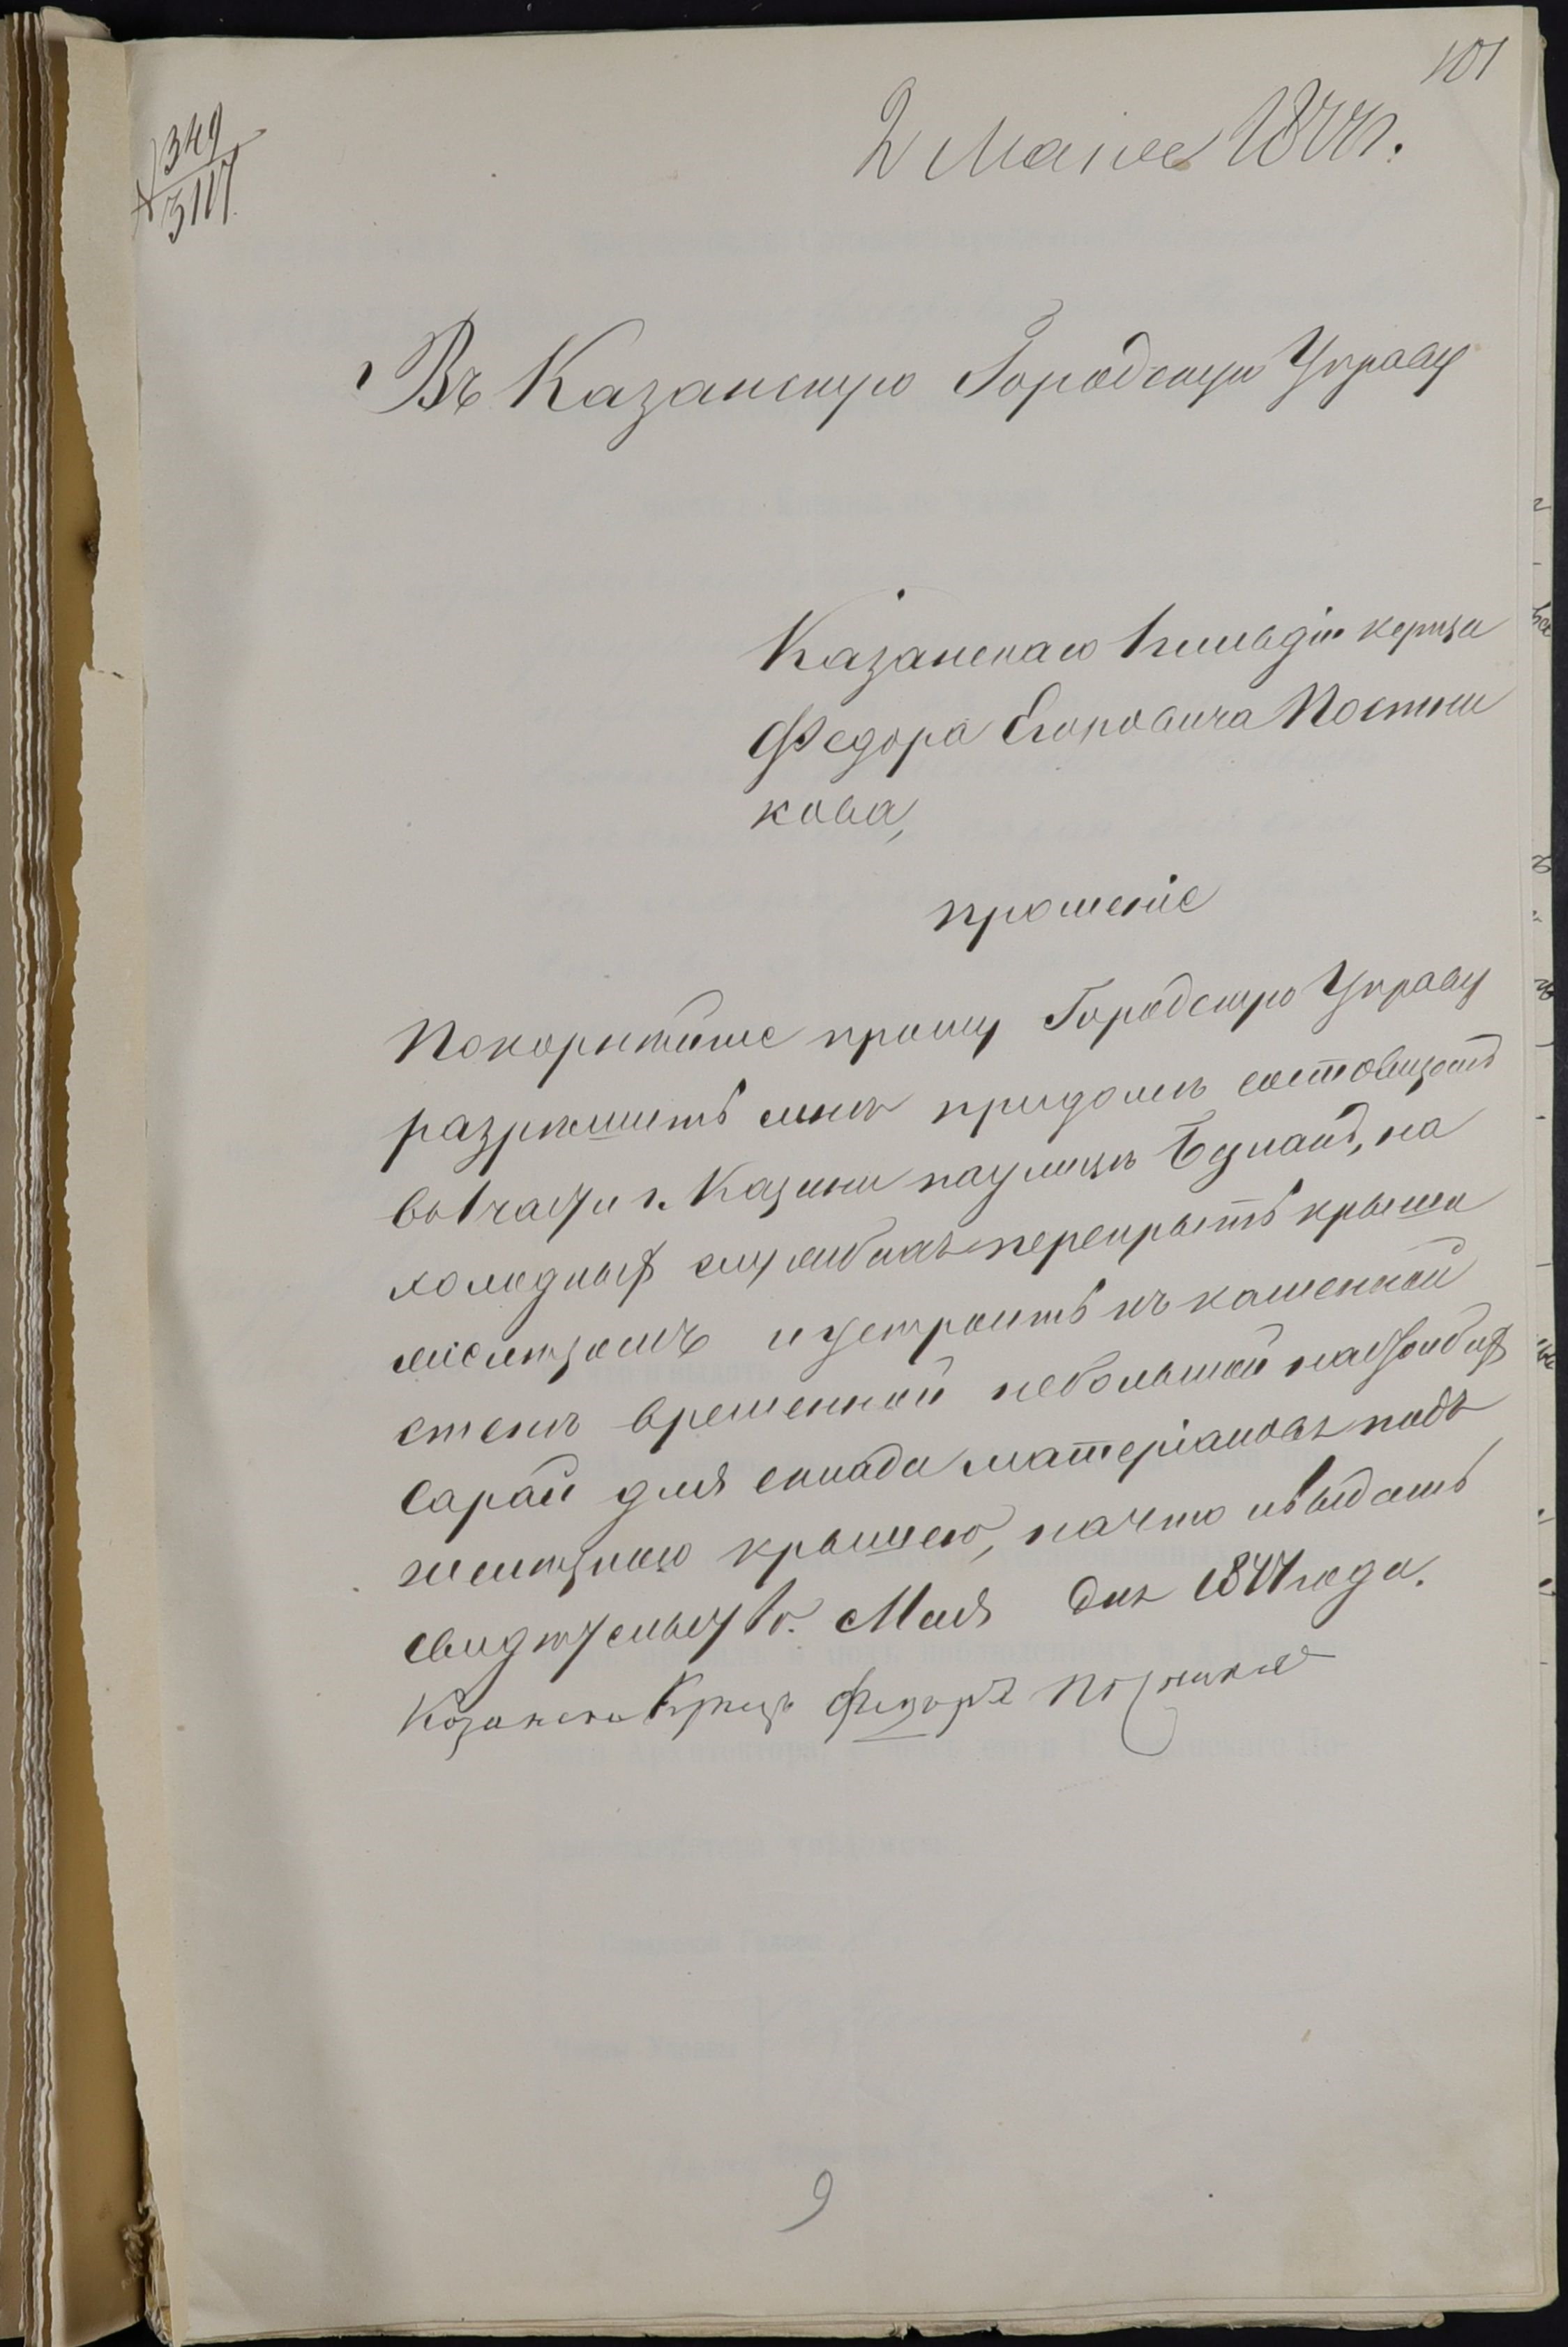 101
2 Маія 1877 г.
349
3117
Въ Казанскую Городскую Управу
Казанскаго 1 гильдіи купца
Федора Егоровича Постни
кова,
прошеніе
Покорнѣйше прошу Городскую Управу
разрѣшить мнѣ при домѣ состоящемъ
во 1 части г. Казани на улицѣ Булакъ, на
холодныхъ службахъ перекрыть крыши
желѣзомъ и устроить къ каменной
стенѣ временной небольшой на столбахъ
сарай для склада матеріаловъ подъ
желѣзною крышею, на что и выдать
свидѣтельство. Мая дня 1877 года.
Казанско Купецъ Федоръ Постников
9